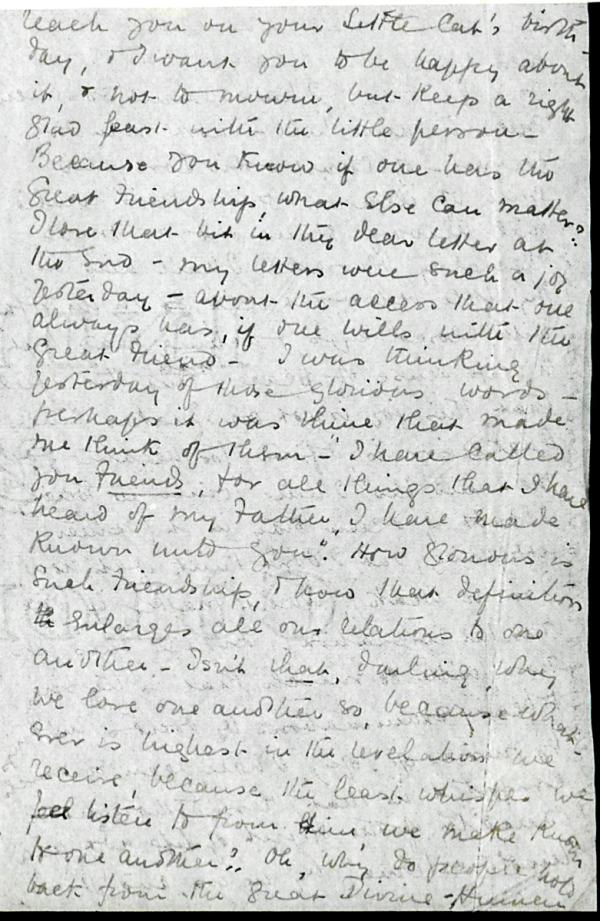 reach you on your Little Cat's birth-
day, & I want you to be happy about
it, & not to mourn, but keep a right
glad feast with the little person -
Because you know if one has the
Great Friendship, what Else Can matter?
I love that bit in thy dear letter at
the End - my letters were such a joy
yesterday - about the access that one
always has, if one wills with the
Great Friend - I was thinking
yesterday of those glorious words -
perhaps it was thine that made
me think of them - "I have Called
you Friends, for all things that I have
heard of my Father, I have made
known unto you". How glorious is
Such Friendship, & how that definition
Enlarges all our relations to one
another - Isn't that, darling, why
we love one another so, because what-
Ever is highest in the revelation we
receive, because the least whisper we
feel listen to from Him we make known
to one another? Oh, why do people hold
back from the Great Divine-Human